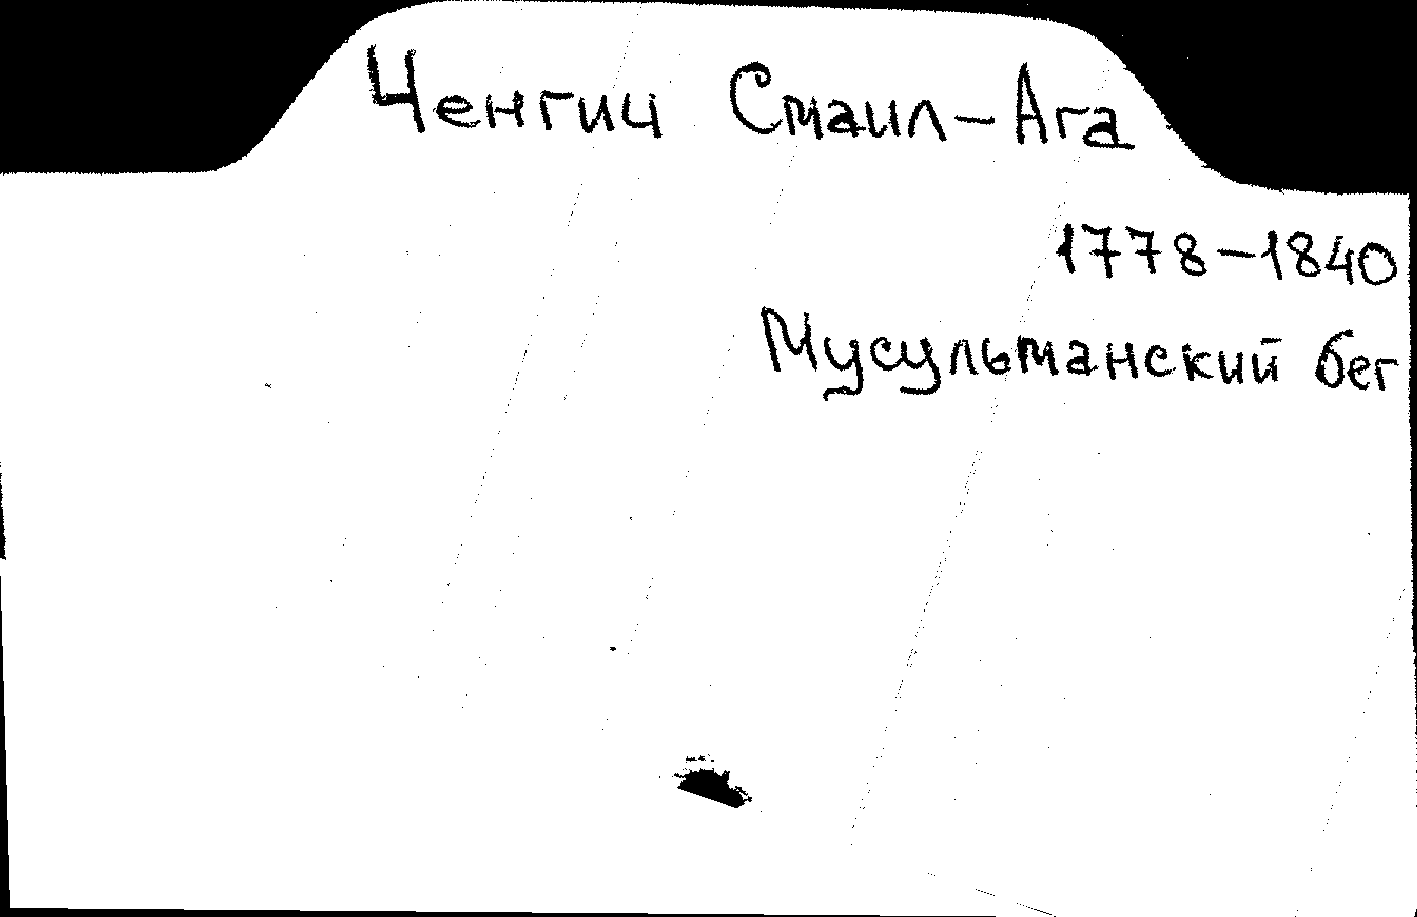 Ченгич Смаил-Ага
1778-1840
Мусульманский бег